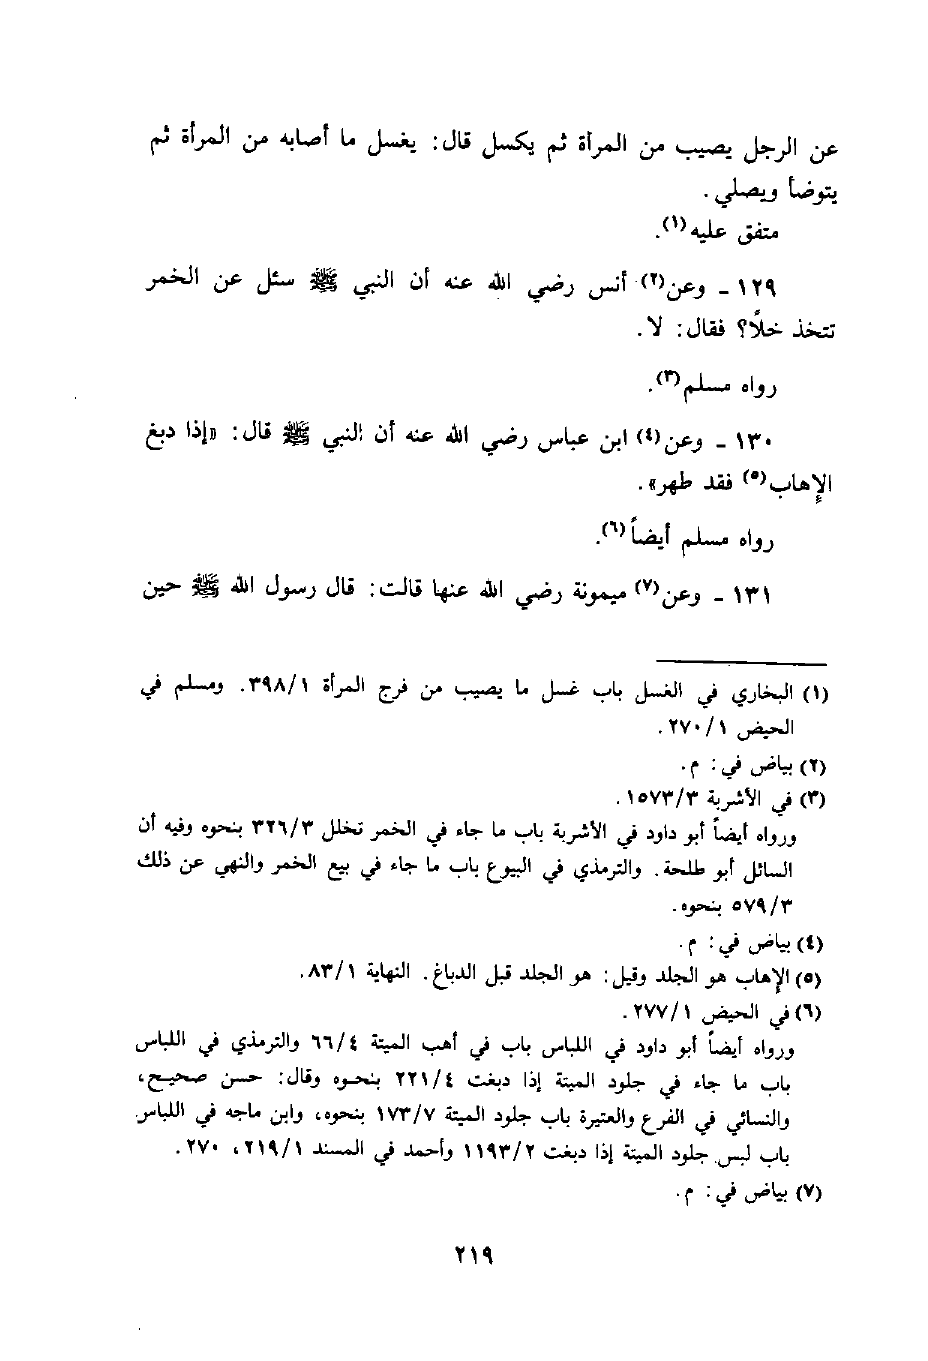 عن الرجل يصيب من المرأة ثم يكسل قال: يغسل ما أصابه من المرأة ثم
يتوضأ ويصلي.
متفق عليه(١).
١٢٩ ـ وعن(٢) أنس رضي الله عنه أن النبي ﷺ سئل عن الخمر
تتخذ خلاً؟ فقال: لا.
رواه مسلم(٣).
١٣٠ ـ وعن(٤) ابن عباس رضي الله عنه أن النبي ﷺ قال: «إذا دبغ
الإهاب(٥) فقد طهر».
رواه مسلم أيضاً(٦).
١٣١ ـ وعن(٧) ميمونة رضي الله عنها قالت: قال رسول الله ﷺ حين
(١) البخاري في الغسل باب غسل ما يصيب من فرج المرأة ٣٩٨/١. ومسلم في
الحيض ٢٧٠/١.
(٢) بياض في: م.
(٣) في الأشربة ١٥٧٣/٣.
ورواه أيضاً أبو داود في الأشربة باب ما جاء في الخمر تخلل ٣٢٦/٣ بنحوه وفيه أن
السائل أبو طلحة. والترمذي في البيوع باب ما جاء في بيع الخمر والنهي عن ذلك
٥٧٩/٣ بنحوه.
(٤) بياض في: م.
(٥) الإهاب هو الجلد وقيل: هو الجلد قبل الدباغ. النهاية ٨٣/١.
(٦) في الحيض ٢٧٧/١.
ورواه أيضاً أبو داود في اللباس باب في أهب الميتة ٦٦/٤ والترمذي في اللباس
باب ما جاء في جلود الميتة إذا دبغت ٢٢١/٤ بنحوه وقال: حسن صحيح،
والنسائي في الفرع والعتيرة باب جلود الميتة ١٧٣/٧ بنحوه، وابن ماجه في اللباس
باب لبس جلود الميتة إذا دبغت ١١٩٣/٢ وأحمد في المسند ٢١٩/١، ٢٧٠.
(٧) بياض في: م.
٢١٩